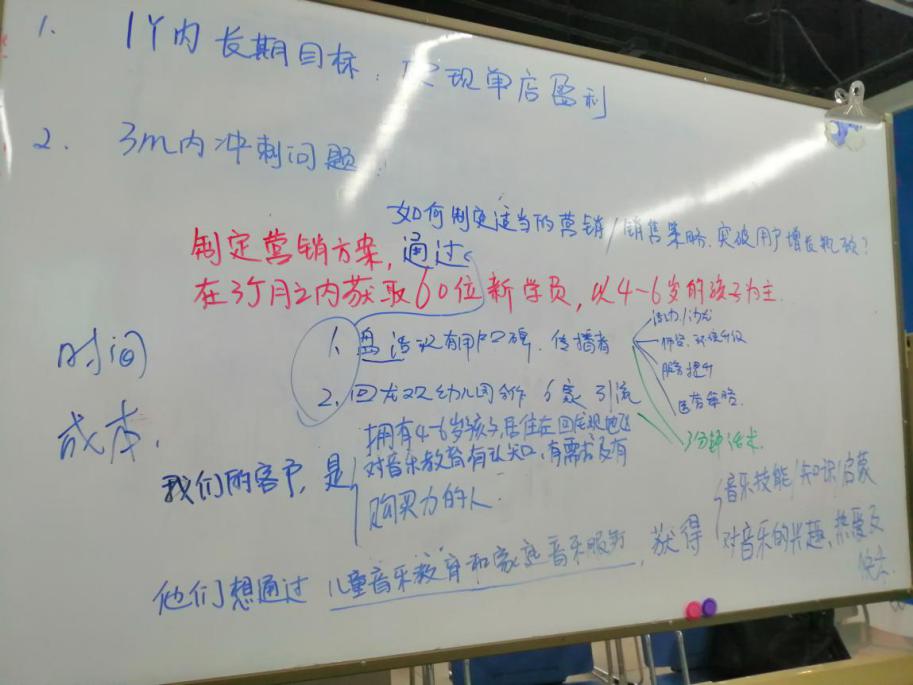 1. 1Y内长期目标：实现单店盈利
2. 3m内冲刺问题：
如何制定适当的营销/销售策略、突破用户增长瓶颈？
制定营销方案，通过
在3个月之内获取60位新学员，以4-6岁的孩子为主.
时间
成本.
1. 盘活现有用户口碑、传播者
2. 回龙观幼儿园合作 引流
服务提升
3分钟话术.
我们的客户，是
拥有4-6岁孩子，居住在回龙观地区
对音乐教育有认知，有需求及有
购买力的人.
他们想通过 儿童音乐教育和家庭音乐服务，获得
音乐技能/知识/启蒙
对音乐的兴趣、热爱及